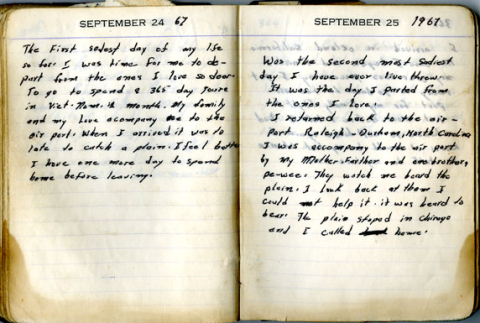 SEPTEMBER 24 67
The First sadest day of my life
so far I was time for me to de-
part form the ones I love so dear.
To go to spend a 365 day toure
in Viet-Nam. 12 month. My family
and my love acompany me to the
air port. When I arrived it was to
late to catch a plain. I feel bette
I have one more day to spend
home before leaving.
SEPTEMBER 25 1967
Was the second most sadiest
day I have ever live throw.
It was the day I parted from
the ones I love.
I returned back to the air-
port Raleigh-Durham, North Carolina
I was accompany to the air port
by my Mother-Farther and one brother,
pe-wee. They watch me beard the
plain. I look back at them I
could not help it. it was heard to
bear. The plain stoped in Chicago
and I called home.